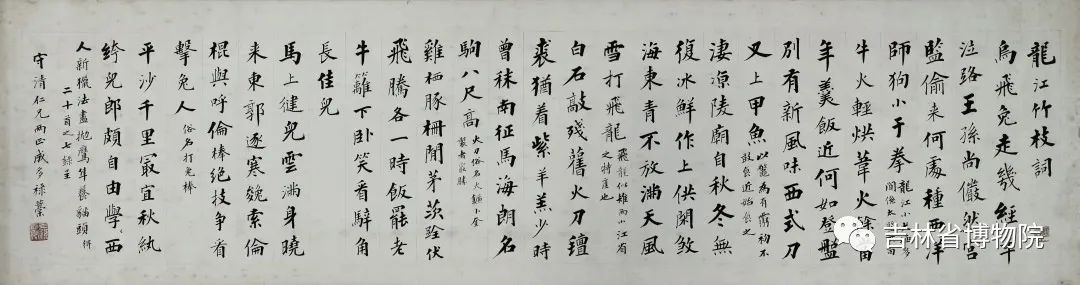 龍江竹枝詞
烏飛兔走幾經年
泣路王孫尚儼然宮
監偷來何處種西洋
師狗小于拳龍江小
牛火輕烘葦火除留
年羹飯近何如登盤
別有新風味西式刀
叉上甲魚以鱉為有毒初不
敢食近始食之
淒涼陵廟自秋冬無
復冰鮮作上供閑煞
海東青不放滿天風
雪打飛龍飛龍似雉而小江省
之特産也
白石敲殘舊火刀羶
裘猶着紫羊羔少時
曾秣南征馬海朗名
駒八尺高火刀俗名火鐮
雞栖豚柵閒茅茨跧伏
飛騰各一時飯罷老
牛籬下卧笑看騂角
長佳兒
馬上健兒雲滿身曉
来東郭逐寒㕙索倫
棍與呼倫棒絶技爭看
擊兔人俗名打兔棒
平沙千里冣宜秋紈
绔兒郎頗自由學西
人新獵法盡抛鷹隼養貓頭
二十首之七錄呈
守清仁兄兩正成多祿藁
吉林省博物院